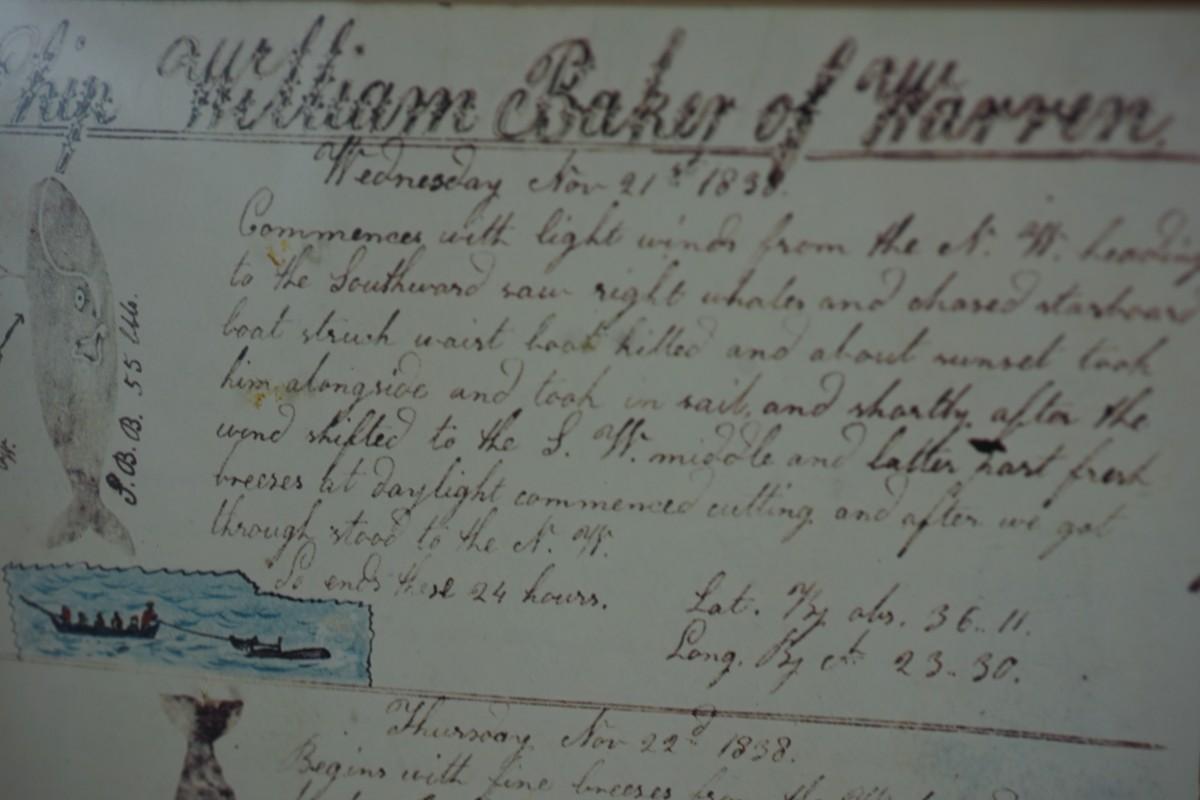 Ship William Baker of Warren.
Wednesday Nov 21st 1838.
Commences with light winds from the N. W. heading
to the Southward saw right whales and chased starboard
boat struck waist boat killed and about sunset took
him alongside and took in sail, and shortly after the
wind shifted to the S. W. middle and latter part fresh
breezes at daylight commenced cutting and after we got
through stood to the N. W.
So ends these 24 hours.
Lat. By obs. 36.. 11.
Long. By ct. 23.. 30.
S. B. B. 55 bbls.
W.
Thursday Nov 22d 1838.
Begins with fine breezes from the